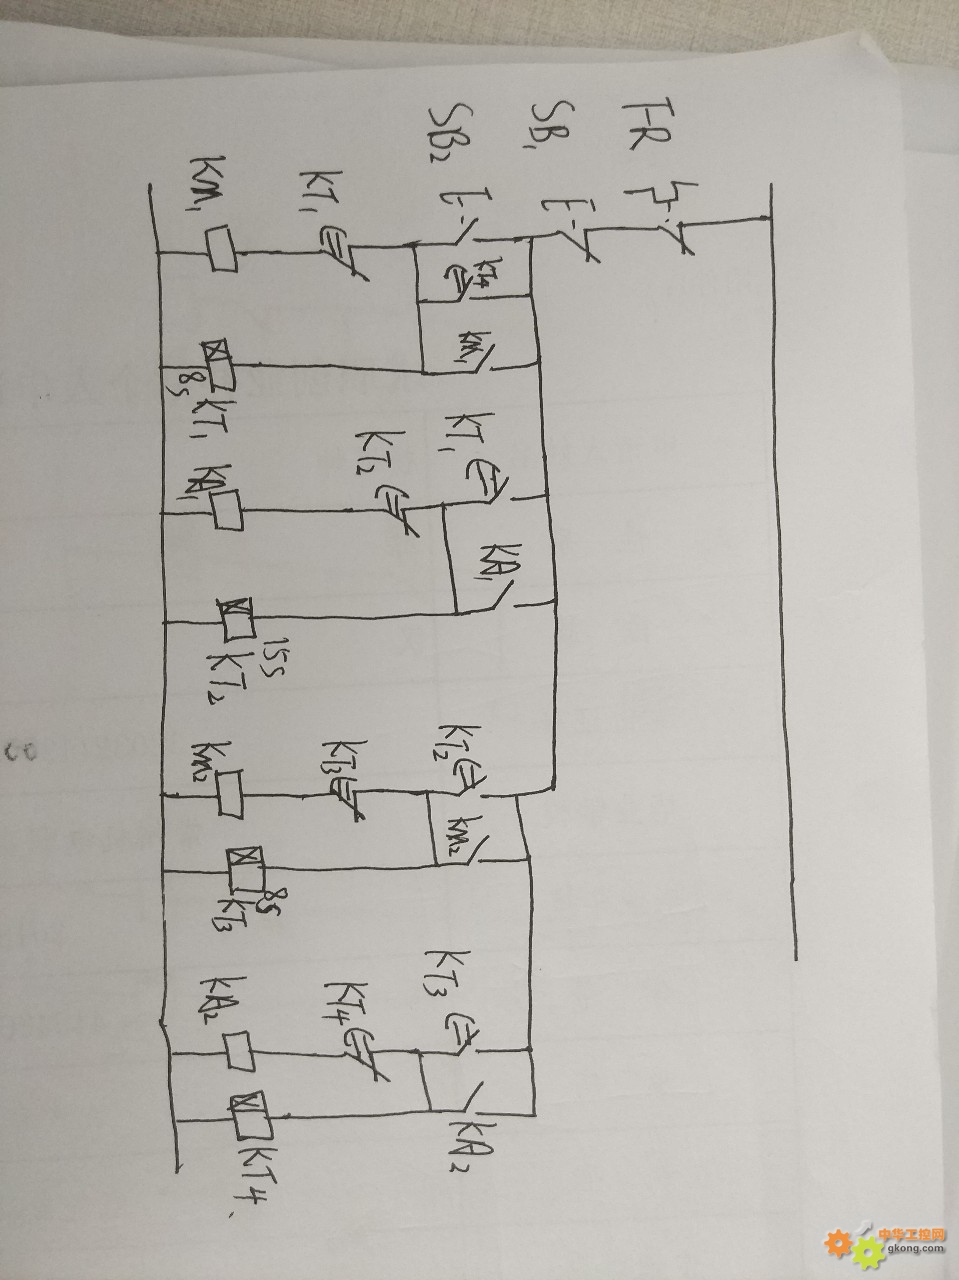 FR
SB1
SB2
KT1
KM1
KT4
KM1
8s
KT1
KT1
KT2
KA1
KA1
15s
KT2
KT2
KT3
KM2
KM2
8s
KT3
KT3
KT4
KA2
KA2
KT4
中华工控网
gkong.com